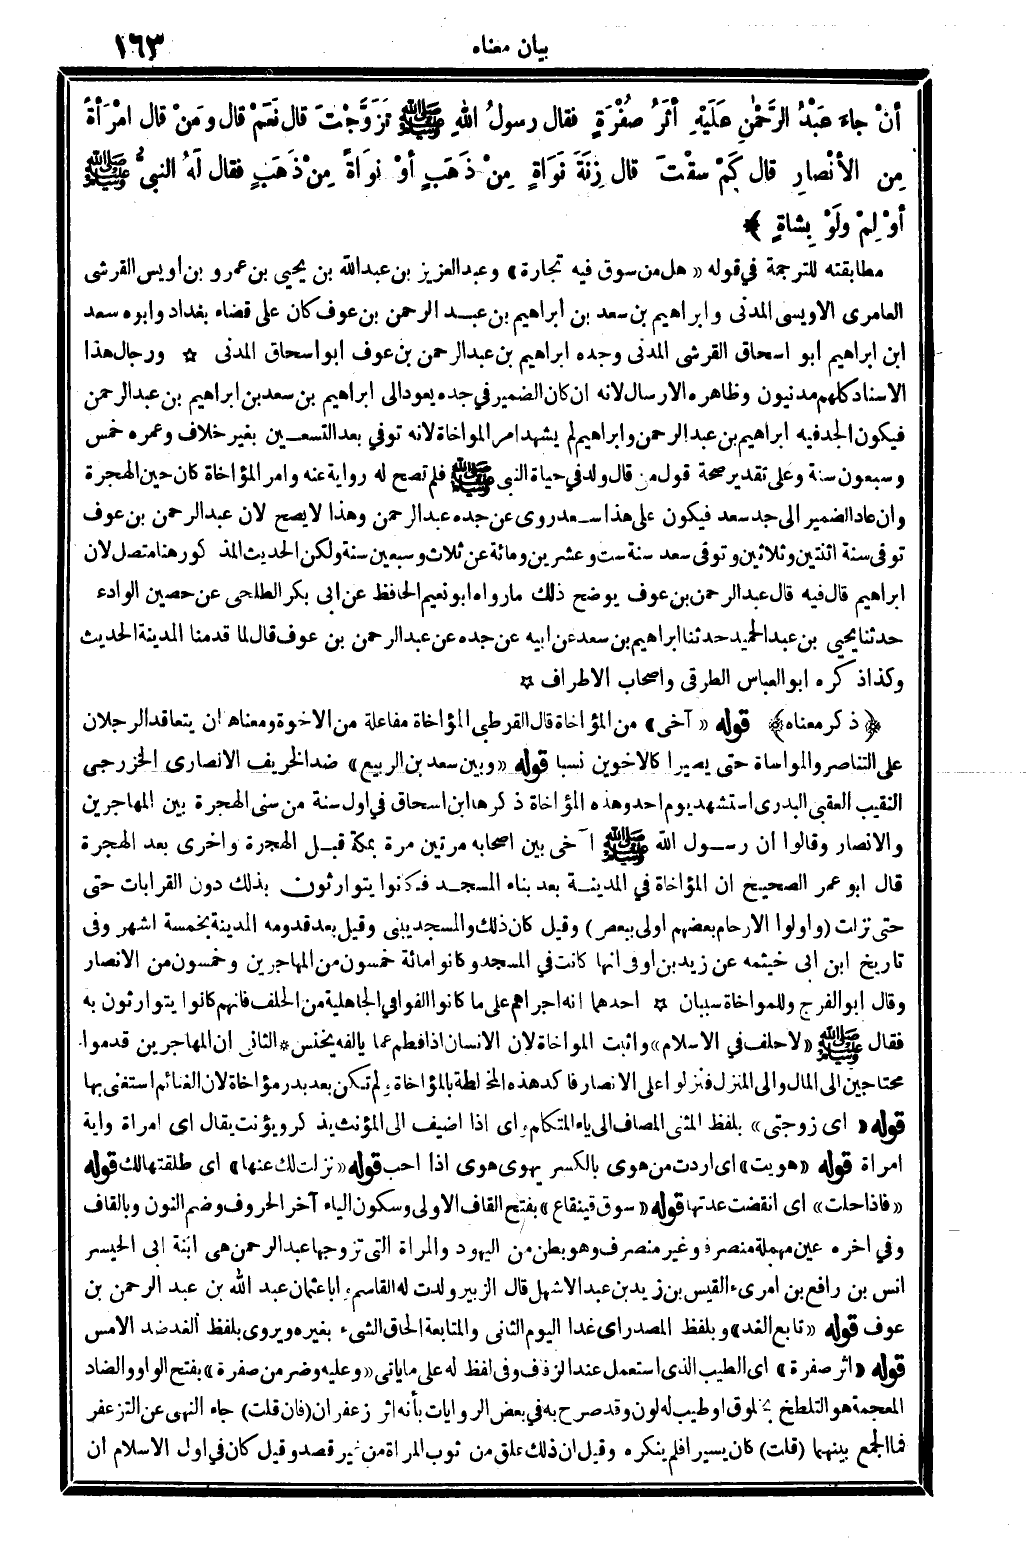 بيان معناه
١٦٣
أنْ جاءَ عَبْدُ الرَّحْمٰنِ عَلَيْهِ أثَرُ صُفْرَةٍ فقال رسولُ اللهِ ﷺ تَزَوَّجْتَ قال نَعَمْ قال ومَنْ قال امْرَأةً
مِن الأنْصارِ قال كَمْ سقْتَ قال زِنَةَ نَوَاةٍ مِنْ ذَهَبٍ أوْ نواةً مِنْ ذَهَبٍ فقال لَهُ النبيُّ ﷺ
أوْلِمْ ولَوْ بِشاةٍ ﴾
مطابقته للترجمة في قوله «هل من سوق فيه تجارة» وعبد العزيز بن عبد الله بن يحيى بن عمرو بن اويس القرشى
العامرى الاويسى المدنى وابراهيم بن سعد بن ابراهيم بن عبد الرحمن بن عوف كان على قضاء بغداد وابوه سعد
ابن ابراهيم ابو اسحاق القرشى المدنى وجده ابراهيم بن عبد الرحمن بن عوف ابو اسحاق المدنى ☆ ورجال هذا
الاسناد كلهم مدنيون وظاهره الارسال لانه ان كان الضمير في جده يعود الى ابراهيم بن سعد بن ابراهيم بن عبد الرحمن
فيكون الجد فيه ابراهيم بن عبد الرحمن وابراهيم لم يشهد امر المواخاة لانه توفي بعد التسعين بغير خلاف وعمره خمس
وسبعون سنة وعلى تقدير صحة قول من قال ولد في حياة النبى ﷺ فلم تصح له رواية عنه وامر المؤاخاة كان حين الهجرة
وان عاد الضمير الى جد سعد فيكون على هذا سعد روى عن جده عبد الرحمن وهذا لا يصح لان عبد الرحمن بن عوف
توفى سنة اثنتين وثلاثين وتوفى سعد سنة ست وعشرين ومائة عن ثلاث وسبعين سنة ولكن الحديث المذكور هنا متصل لان
ابراهيم قال فيه قال عبد الرحمن بن عوف يوضح ذلك ما رواه ابو نعيم الحافظ عن ابى بكر الطلحى عن حصين الوادء
حدثنا يحيى بن عبد الحميد حدثنا ابراهيم بن سعد عن ابيه عن جده عن عبد الرحمن بن عوف قال لما قدمنا المدينة الحديث
وكذا ذكره ابو العباس الطرقى واصحاب الاطراف ☆
﴿ذكر معناه﴾ قوله «آخى» من المؤاخاة قال القرطبى المؤاخاة مفاعلة من الاخوة ومعناها ان يتعاقد الرجلان
على التناصر والمواساة حتى يصيرا كالاخوين نسبا قوله «وبين سعد بن الربيع» ضد الخريف الانصارى الخزرجى
النقيب العقبى البدرى استشهد يوم احد وهذه المؤاخاة ذكرها ابن اسحاق في اول سنة من سنى الهجرة بين المهاجرين
والانصار وقالوا ان رسول الله ﷺ آخى بين اصحابه مرتين مرة بمكة قبل الهجرة واخرى بعد الهجرة
قال ابو عمر الصحيح ان المؤاخاة في المدينة بعد بناء المسجد فكانوا يتوارثون بذلك دون القرابات حتى
حتى نزلت (واولوا الارحام بعضهم اولى ببعض) وقيل كان ذلك والمسجد يبنى وقيل بعد قدومه المدينة بخمسة اشهر وفى
تاريخ ابن ابى خيثمه عن زيد بن اوفى انها كانت في المسجد وكانوا مائة خمسون من المهاجرين وخمسون من الانصار
وقال ابو الفرج وللمواخاة سببان ☆ احدهما انه اجراهم على ما كانوا الفوا في الجاهلية من الحلف فانهم كانوا يتوارثون به
فقال ﷺ «لا حلف في الاسلام» واثبت المواخاة لان الانسان اذا فطم عما يالفه يخنس * الثانى ان المهاجرين قدموا
محتاجين الى المال والى المنزل فنزلوا على الانصار فاكد هذه المخالطة بالمؤاخاة ولم تكن بعد بدر مؤاخاة لان الغنائم استغنى بها
قوله «اى زوجتى» بلفظ المثنى المضاف الى ياء المتكلم واى اذا اضيف الى المؤنث يذكر ويؤنث يقال اى امراة واية
امراة قوله «هويت» اى اردت من هوى بالكسر يهوى هوى اذا احب قوله «نزلت لك عنها» اى طلقتها لك قوله
«فاذا حلت» اى انقضت عدتها قوله «سوق قينقاع» بفتح القاف الاولى وسكون الياء آخر الحروف وضم النون وبالقاف
وفي اخره عين مهملة منصرف وغير منصرف وهو بطن من اليهود والمراة التى تزوجها عبد الرحمن هى ابنة ابى الحيسر
انس بن رافع بن امرىء القيس بن زيد بن عبد الاشهل قال الزبير ولدت له القاسم وابا عثمان عبد الله بن عبد الرحمن بن
عوف قوله «تابع الغد» وبلفظ المصدر اى غدا اليوم الثانى والمتابعة الحاق الشىء بغيره ويروى بلفظ الغد ضد الامس
قوله «اثر صفرة» اى الطيب الذى استعمل عند الزفاف وفى لفظ له على ما ياتى «وعليه وضر من صفرة» بفتح الواو والضاد
المعجمة هو التلطخ بخلوق او طيب له لون وقد صرح به في بعض الروايات بأنه اثر زعفران (فان قلت) جاء النهى عن التزعفر
فما الجمع بينهما (قلت) كان يسيرا فلم ينكره وقيل ان ذلك علق من ثوب المراة من غير قصد وقيل كان في اول الاسلام ان